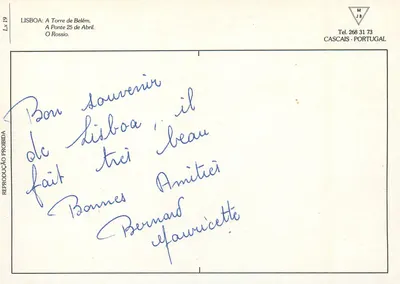 Lx 19
LISBOA: A Torre de Belém.
A Ponte 25 de Abril.
O Rossio.
M
J B
Tel. 268 31 73
CASCAIS - PORTUGAL
REPRODUÇÃO PROIBIDA
Bon souvenir
de Lisboa, il
fait très beau
Bonnes Amitiés
Bernard
Mauricette